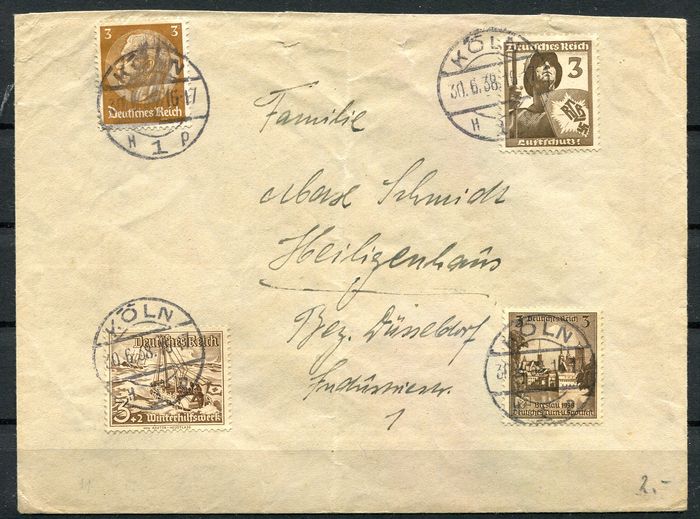 3 3
KÖLN
16-17
Deutsches Reich
H 1 p
KÖLN
30.6.38
H
Deutsches Reich
3
Luftschutz!
Familie
Schmidt
Heiligenhaus
Bez. Düsseldorf
Industriestr.
1
KÖLN
30.6.38
H
Deutsches Reich
3+2 Winterhilfswerk
KÖLN
30
3 Deutsches Reich 3
Breslau 1938
Deutsches Turn u. Sportfest
2,-